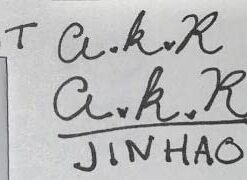 T a.k.R
a.k.R
JINHAO